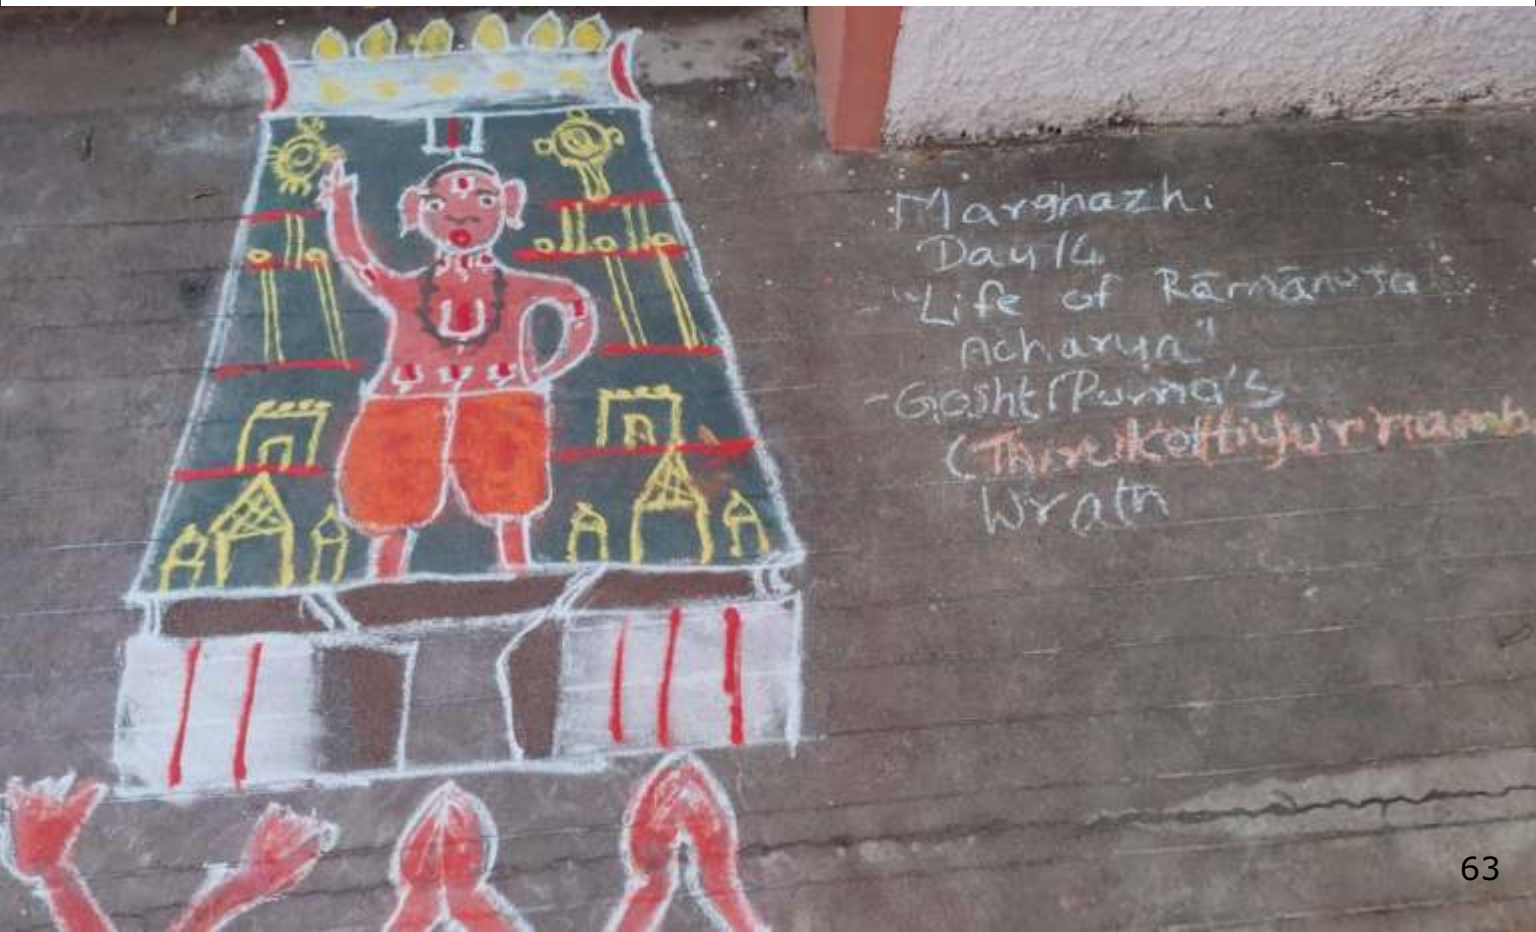 Marghazhi
Day 14
- "Life of Rāmānuja
Acharya"
- Goshti Purna's
(Thirukottiyur namb
Wrath
63